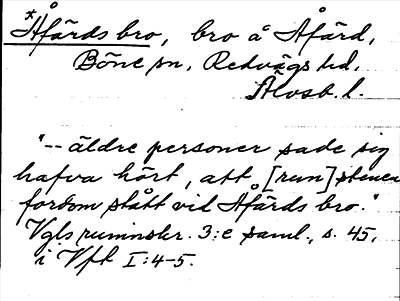 *Åfärds bro, bro å Åfärd,
Böne sn. Redvägs hd.
Älvsb. l.
"-- äldre personer sade sig
hafva hört, att [run]stenen
fordom stått vid Åfärds bro."
Vgls runinskr. 3:e saml., s. 45,
i Vft I:4-5.